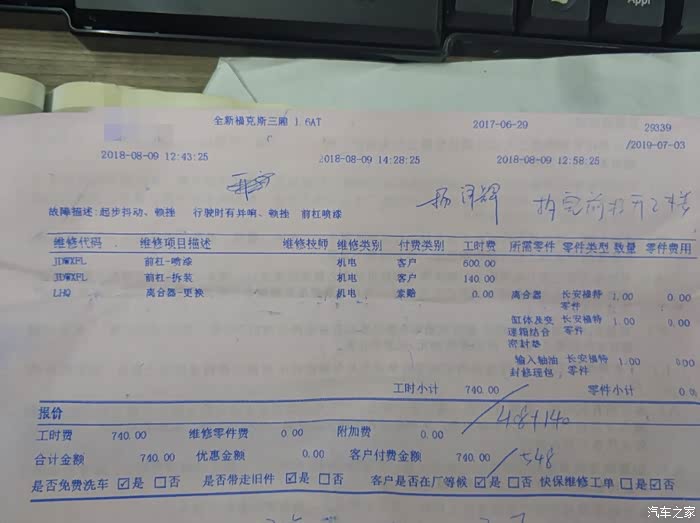 Appl
全新福克斯三厢 1.6AT 2017-06-29 29339
/2019-07-03
2018-08-09 12:43:25 2018-08-09 14:28:25 2018-08-09 12:58:25
故障描述:起步抖动、顿挫 行驶时有异响、顿挫 前杠喷漆
维修代码 维修项目描述 维修技师 维修类别 付费类别 工时费 所需零件 零件类型 数量 零件费用
JDWXFL 前杠-喷漆 机电 客户 600.00
JDWXFL 前杠-拆装 机电 客户 140.00
LHQ 离合器-更换 机电 索赔 0.00 离合器 长安福特零件 1.00 0.00
缸体及变速箱结合密封垫 长安福特零件 1.00 0.00
输入轴油封修理包, 长安福特零件 1.00 0.00
工时小计 740.00 零件小计 0.0
报价
408+140
工时费 740.00 维修零件费 0.00 附加费 0.00
合计金额 740.00 优惠金额 0.00 客户付费金额 740.00 548
是否免费洗车 ☑是 □否 是否带走旧件 ☑是 □否 客户是否在厂等候 ☑是 □否 快保维修工单 □是 ☑否
汽车之家